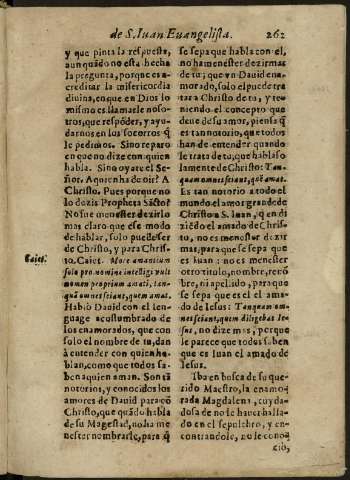 de S. Iuan Euangelista. 262
y que pinta la respuesta,
aun quãdo no esta hecha
la pregunta, porque es a-
creditar la misericordia
diuina, en que en Dios lo
mismo es llamarle noso-
tros, que respõder, y ayu-
darnos en los socorros q̃
le pedimos. Sino reparo
en que no dize con quien
habla. Sino oyareel Se-
ñor. A quien ha de oir? A
Christo. Pues porque no
lo dezis Propheta Sãcto?
No fue menester dezirlo
mas claro que ese modo
de hablar, solo puede ser
de Christo, y para Chris-
Caiet.
to. Caiet. More amantium
solo pronomine intelligi vult
nomen proprium amati, tan-
quã omnes sciant, quem amat.
Habló Dauid con el len-
guage acostumbrado de
los enamorados, que con
solo el nombre de tu, dan
à entender con quien ha-
blan, como que todos sa-
ben a quien aman. Son tã
notorios, y conocidos los
amores de Dauid para cõ
Christo, que quãdo habla
de su Magestad, no ha me
nester nombrarle, para q̃
se sepa que habla con el,
no ha menester dezir mas
de tu; que en Dauid ena-
morado, solo el puede tra
tar a Christo de tu, y te-
niendo el concepto que
deue de su amor, piensa q̃
es tan notorio, que todos
han de entender quando
le trata de tu, que habla so
lamente de Christo: Tan-
quam omnes sciant, quẽ amat.
Es tan notorio a todo el
mundo el amor grande de
Christo a S. Iuan, q̃ en di
ziẽdo el amado de Chris-
to, no es menester dezir
mas, para que se sepa que
es Iuan: no es menester
otro titulo, nombre, renõ
bre, ni apellido, para que
se sepa que es el el ama-
do de Iesus: Tanquam om-
nes sciant, quem diligebat Ie-
sus, no dize mas, porque
le parece que todos saben
que es Iuan el amado de
Iesus.
Iba en busca de su que-
rido Maestro, la enamo-
rada Magdalena, cuyda-
dosa de no le hauer halla-
do en el sepulchro, y en-
contrandole, no le cono-
cio,